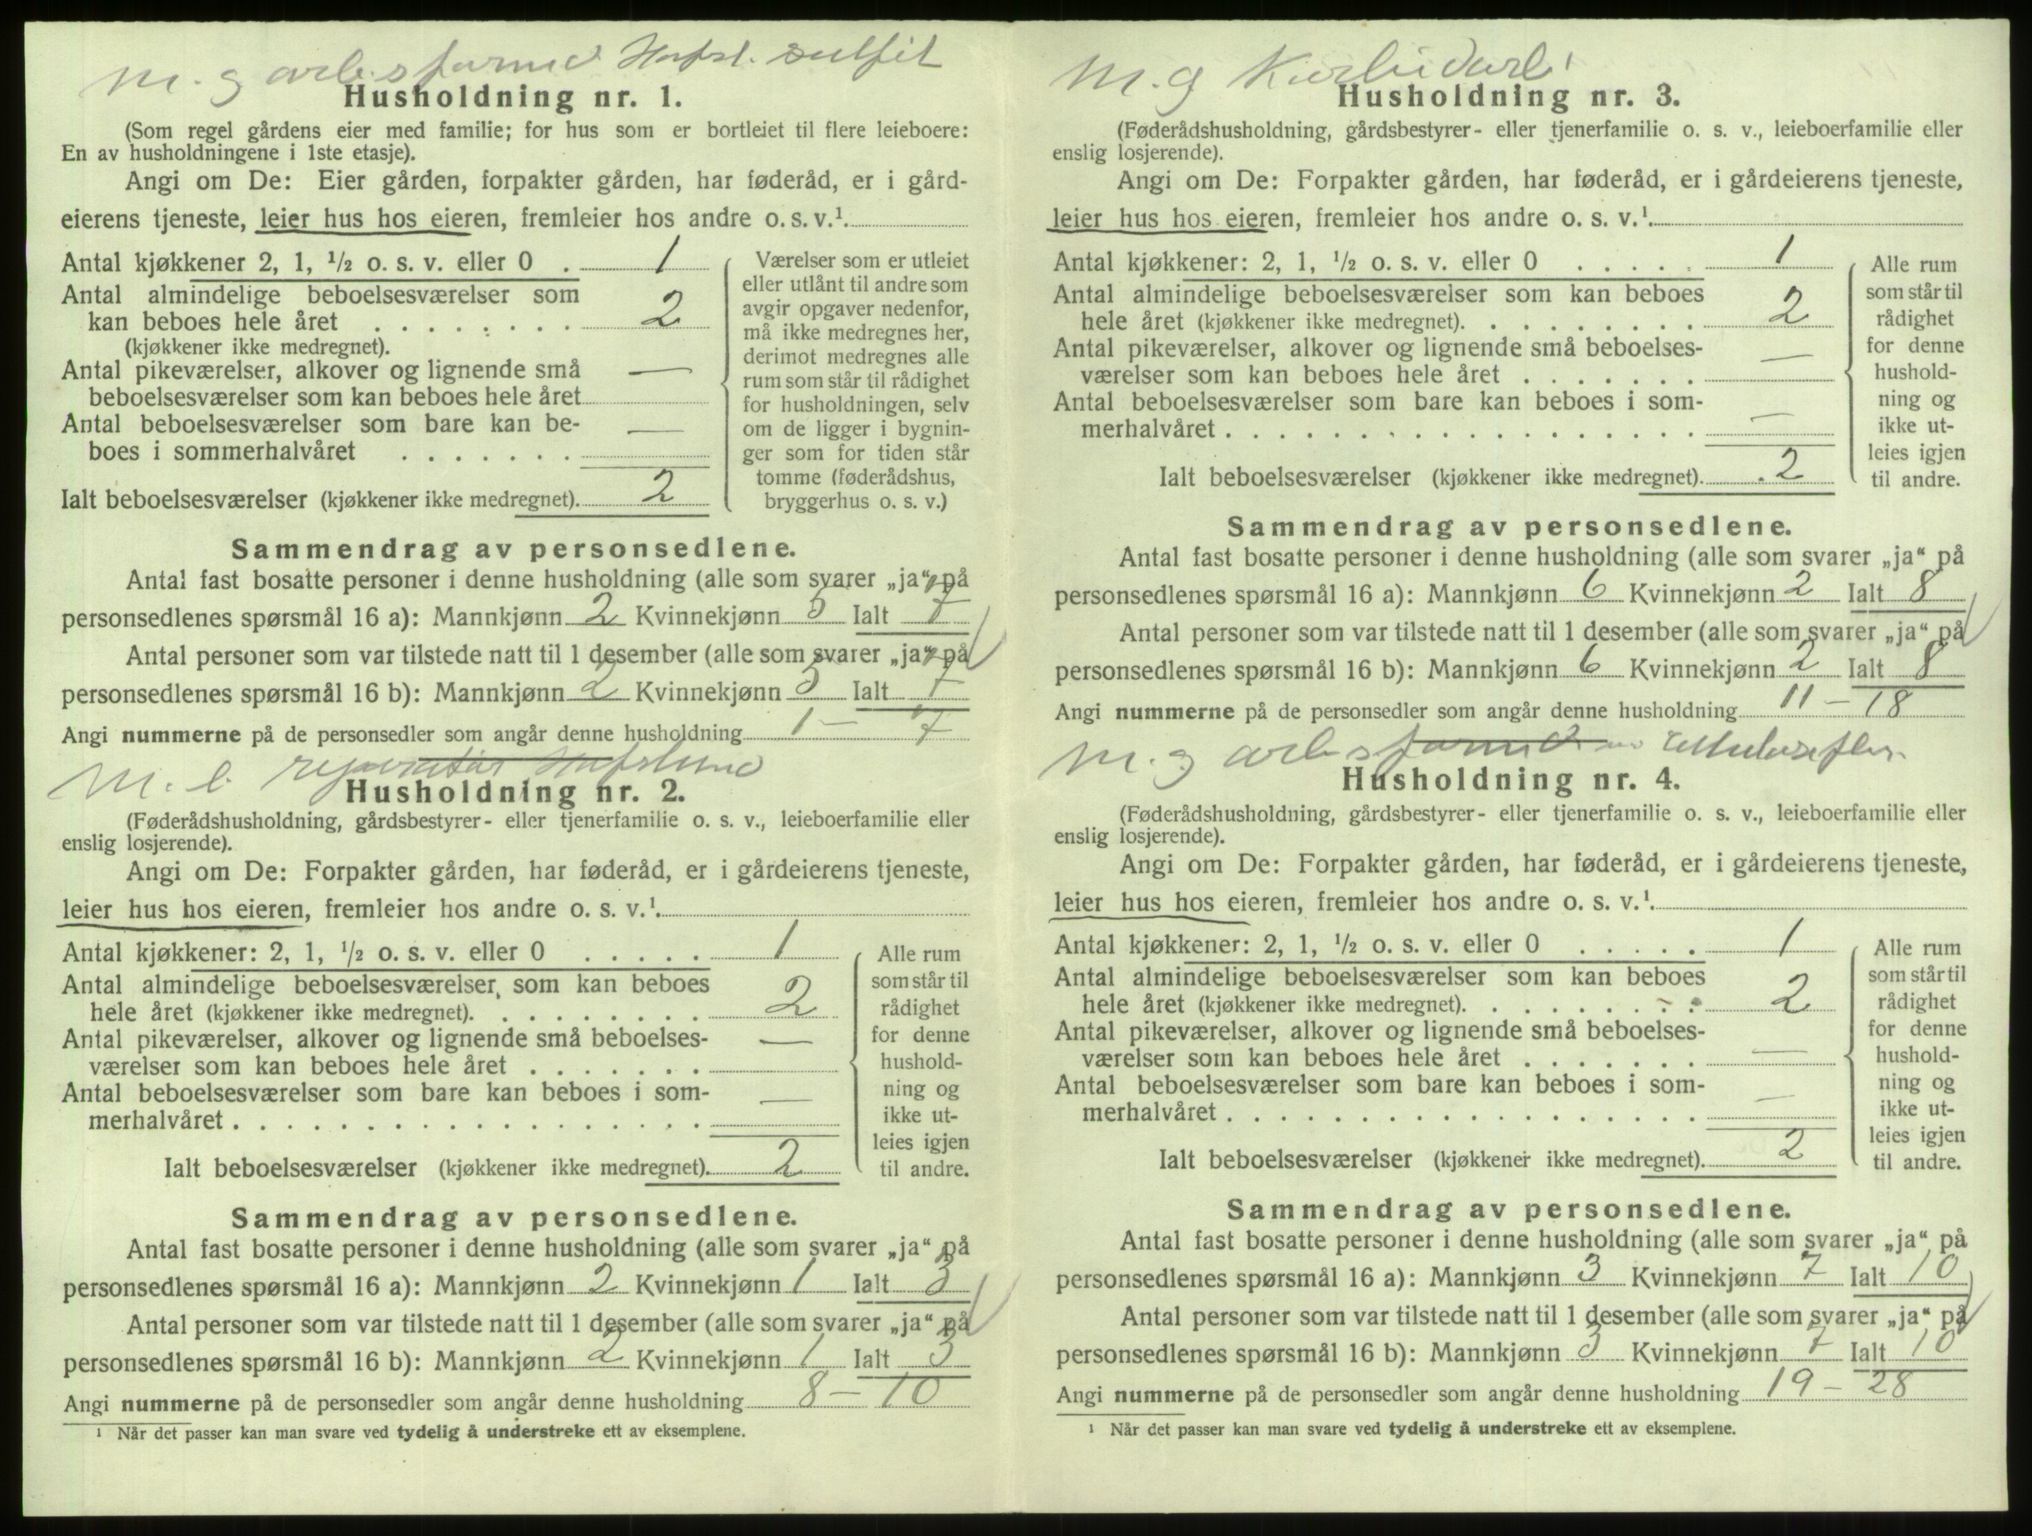 M. g arb.sformd Hafsl. sulfit
Husholdning nr. 1.
(Som regel gårdens eier med familie; for hus som er bortleiet til flere leieboere:
En av husholdningene i 1ste etasje).
Angi om De: Eier gården, forpakter gården, har føderåd, er i gård-
eierens tjeneste, leier hus hos eieren, fremleier hos andre o. s. v.¹.
Antal kjøkkener 2, 1, ½ o. s. v. eller 0 . 1
Antal almindelige beboelsesværelser som
kan beboes hele året . . . . . . . . 2
(kjøkkener ikke medregnet).
Antal pikeværelser, alkover og lignende små —
beboelsesværelser som kan beboes hele året
Antal beboelsesværelser som bare kan be- —
boes i sommerhalvåret . . . . . . .
Ialt beboelsesværelser (kjøkkener ikke medregnet). 2
Værelser som er utleiet
eller utlånt til andre som
avgir opgaver nedenfor,
må ikke medregnes her,
derimot medregnes alle
rum som står til rådighet
for husholdningen, selv
om de ligger i bygnin-
ger som for tiden står
tomme (føderådshus,
bryggerhus o. s. v.)
Sammendrag av personsedlene.
Antal fast bosatte personer i denne husholdning (alle som svarer „ja“ på
personsedlenes spørsmål 16 a): Mannkjønn 2 Kvinnekjønn 5 Ialt 7
Antal personer som var tilstede natt til 1 desember (alle som svarer „ja“ på
personsedlenes spørsmål 16 b): Mannkjønn 2 Kvinnekjønn 5 Ialt 7
Angi nummerne på de personsedler som angår denne husholdning 1 — 7
M. l. reparatør Hafslund
Husholdning nr. 2.
(Føderådshusholdning, gårdsbestyrer- eller tjenerfamilie o. s. v., leieboerfamilie eller
enslig losjerende).
Angi om De: Forpakter gården, har føderåd, er i gårdeierens tjeneste,
leier hus hos eieren, fremleier hos andre o. s. v.¹.
Antal kjøkkener: 2, 1, ½ o. s. v. eller 0 . . . . . 1
Antal almindelige beboelsesværelser som kan beboes
hele året (kjøkkener ikke medregnet). . . . . . . . . 2
Antal pikeværelser, alkover og lignende små beboelses- —
værelser som kan beboes hele året . . . . . . .
Antal beboelsesværelser som bare kan beboes i som- —
merhalvåret . . . . . . . . . . . . . . . . . .
Ialt beboelsesværelser (kjøkkener ikke medregnet). 2
Alle rum
som står til
rådighet
for denne
hushold-
ning og
ikke ut-
leies igjen
til andre.
Sammendrag av personsedlene.
Antal fast bosatte personer i denne husholdning (alle som svarer „ja“ på
personsedlenes spørsmål 16 a): Mannkjønn 2 Kvinnekjønn 1 Ialt 3
Antal personer som var tilstede natt til 1 desember (alle som svarer „ja“ på
personsedlenes spørsmål 16 b): Mannkjønn 2 Kvinnekjønn 1 Ialt 3
Angi nummerne på de personsedler som angår denne husholdning 8 — 10
¹ Når det passer kan man svare ved tydelig å understreke ett av eksemplene.
M. g Karbidarb.
Husholdning nr. 3.
(Føderådshusholdning, gårdsbestyrer- eller tjenerfamilie o. s. v., leieboerfamilie eller
enslig losjerende).
Angi om De: Forpakter gården, har føderåd, er i gårdeierens tjeneste,
leier hus hos eieren, fremleier hos andre o. s. v.¹.
Antal kjøkkener: 2, 1, ½ o. s. v. eller 0 . . . . . 1
Antal almindelige beboelsesværelser som kan beboes
hele året (kjøkkener ikke medregnet). . . . . . . . . 2
Antal pikeværelser, alkover og lignende små beboelses- —
værelser som kan beboes hele året . . . . . . .
Antal beboelsesværelser som bare kan beboes i som- —
merhalvåret . . . . . . . . . . . . . . . . . .
Ialt beboelsesværelser (kjøkkener ikke medregnet). 2
Alle rum
som står til
rådighet
for denne
hushold-
ning og
ikke ut-
leies igjen
til andre.
Sammendrag av personsedlene.
Antal fast bosatte personer i denne husholdning (alle som svarer „ja“ på
personsedlenes spørsmål 16 a): Mannkjønn 6 Kvinnekjønn 2 Ialt 8
Antal personer som var tilstede natt til 1 desember (alle som svarer „ja“ på
personsedlenes spørsmål 16 b): Mannkjønn 6 Kvinnekjønn 2 Ialt 8
Angi nummerne på de personsedler som angår denne husholdning 11 — 18
M. g arb.sformd
Husholdning nr. 4.
(Føderådshusholdning, gårdsbestyrer- eller tjenerfamilie o. s. v., leieboerfamilie eller
enslig losjerende).
Angi om De: Forpakter gården, har føderåd, er i gårdeierens tjeneste,
leier hus hos eieren, fremleier hos andre o. s. v.¹.
Antal kjøkkener: 2, 1, ½ o. s. v. eller 0 . . . . . 1
Antal almindelige beboelsesværelser som kan beboes
hele året (kjøkkener ikke medregnet). . . . . . . . . 2
Antal pikeværelser, alkover og lignende små beboelses- —
værelser som kan beboes hele året . . . . . . .
Antal beboelsesværelser som bare kan beboes i som- —
merhalvåret . . . . . . . . . . . . . . . . . .
Ialt beboelsesværelser (kjøkkener ikke medregnet). 2
Alle rum
som står til
rådighet
for denne
hushold-
ning og
ikke ut-
leies igjen
til andre.
Sammendrag av personsedlene.
Antal fast bosatte personer i denne husholdning (alle som svarer „ja“ på
personsedlenes spørsmål 16 a): Mannkjønn 3 Kvinnekjønn 7 Ialt 10
Antal personer som var tilstede natt til 1 desember (alle som svarer „ja“ på
personsedlenes spørsmål 16 b): Mannkjønn 3 Kvinnekjønn 7 Ialt 10
Angi nummerne på de personsedler som angår denne husholdning 19 — 28
¹ Når det passer kan man svare ved tydelig å understreke ett av eksemplene.